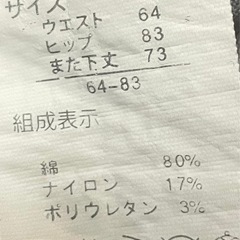 サイズ
ウエスト 64
ヒップ 83
また下丈 73
64-83
組成表示
綿 80%
ナイロン 17%
ポリウレタン 3%